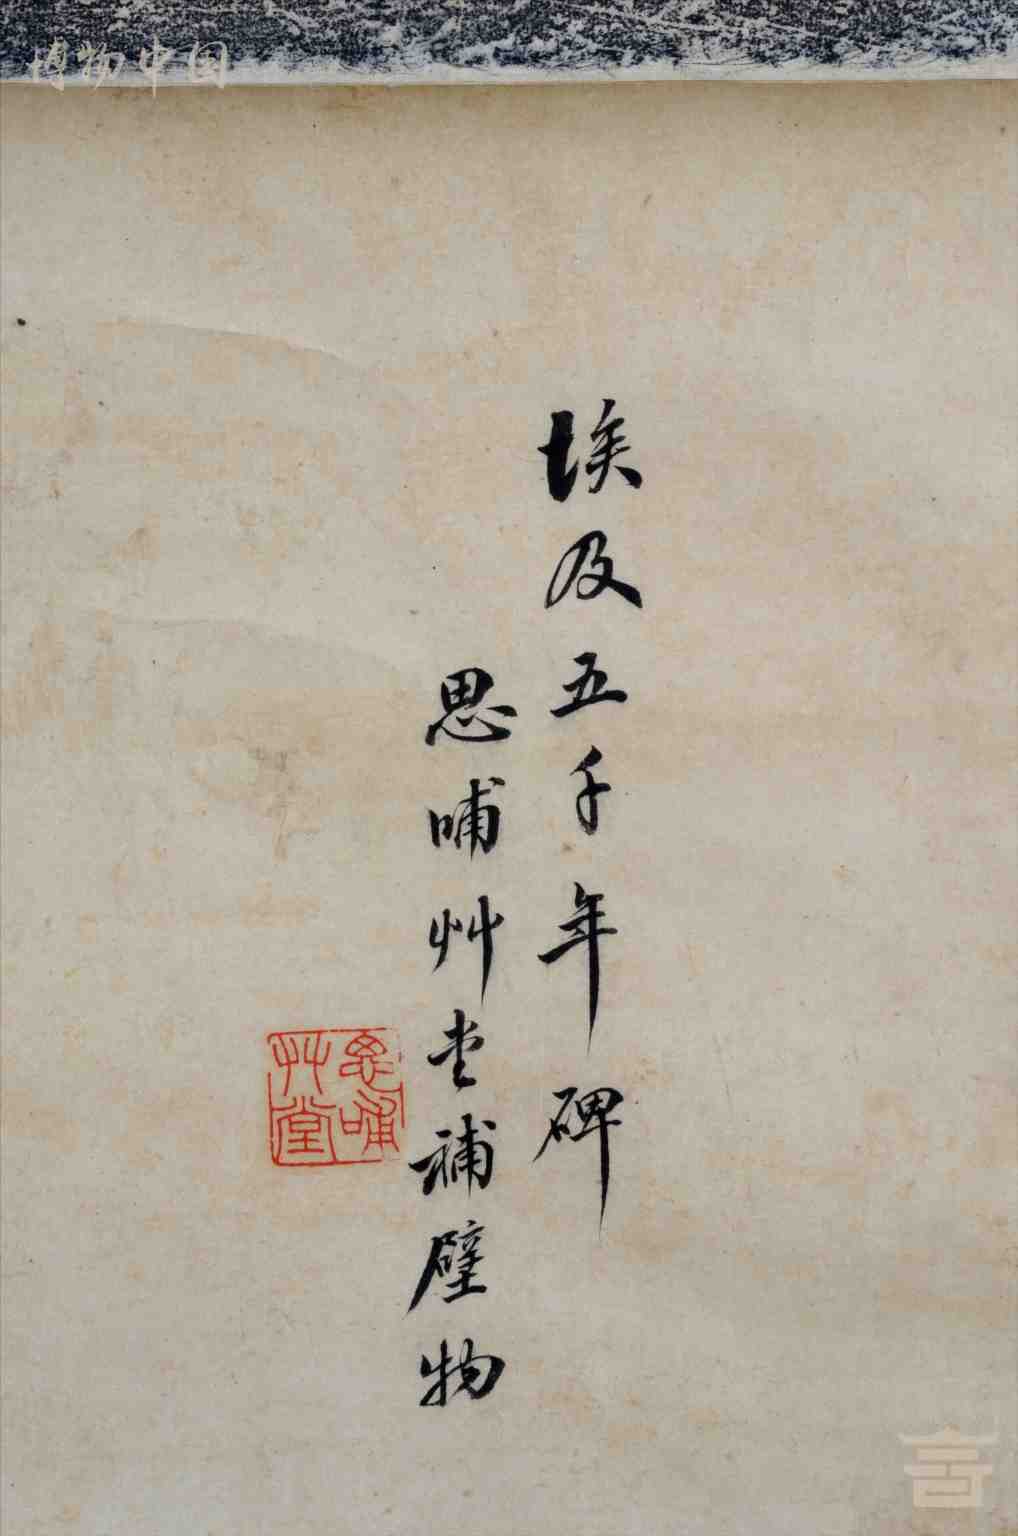 博物中国
埃及五千年碑
思哺艸堂補壁物
思哺
艸堂